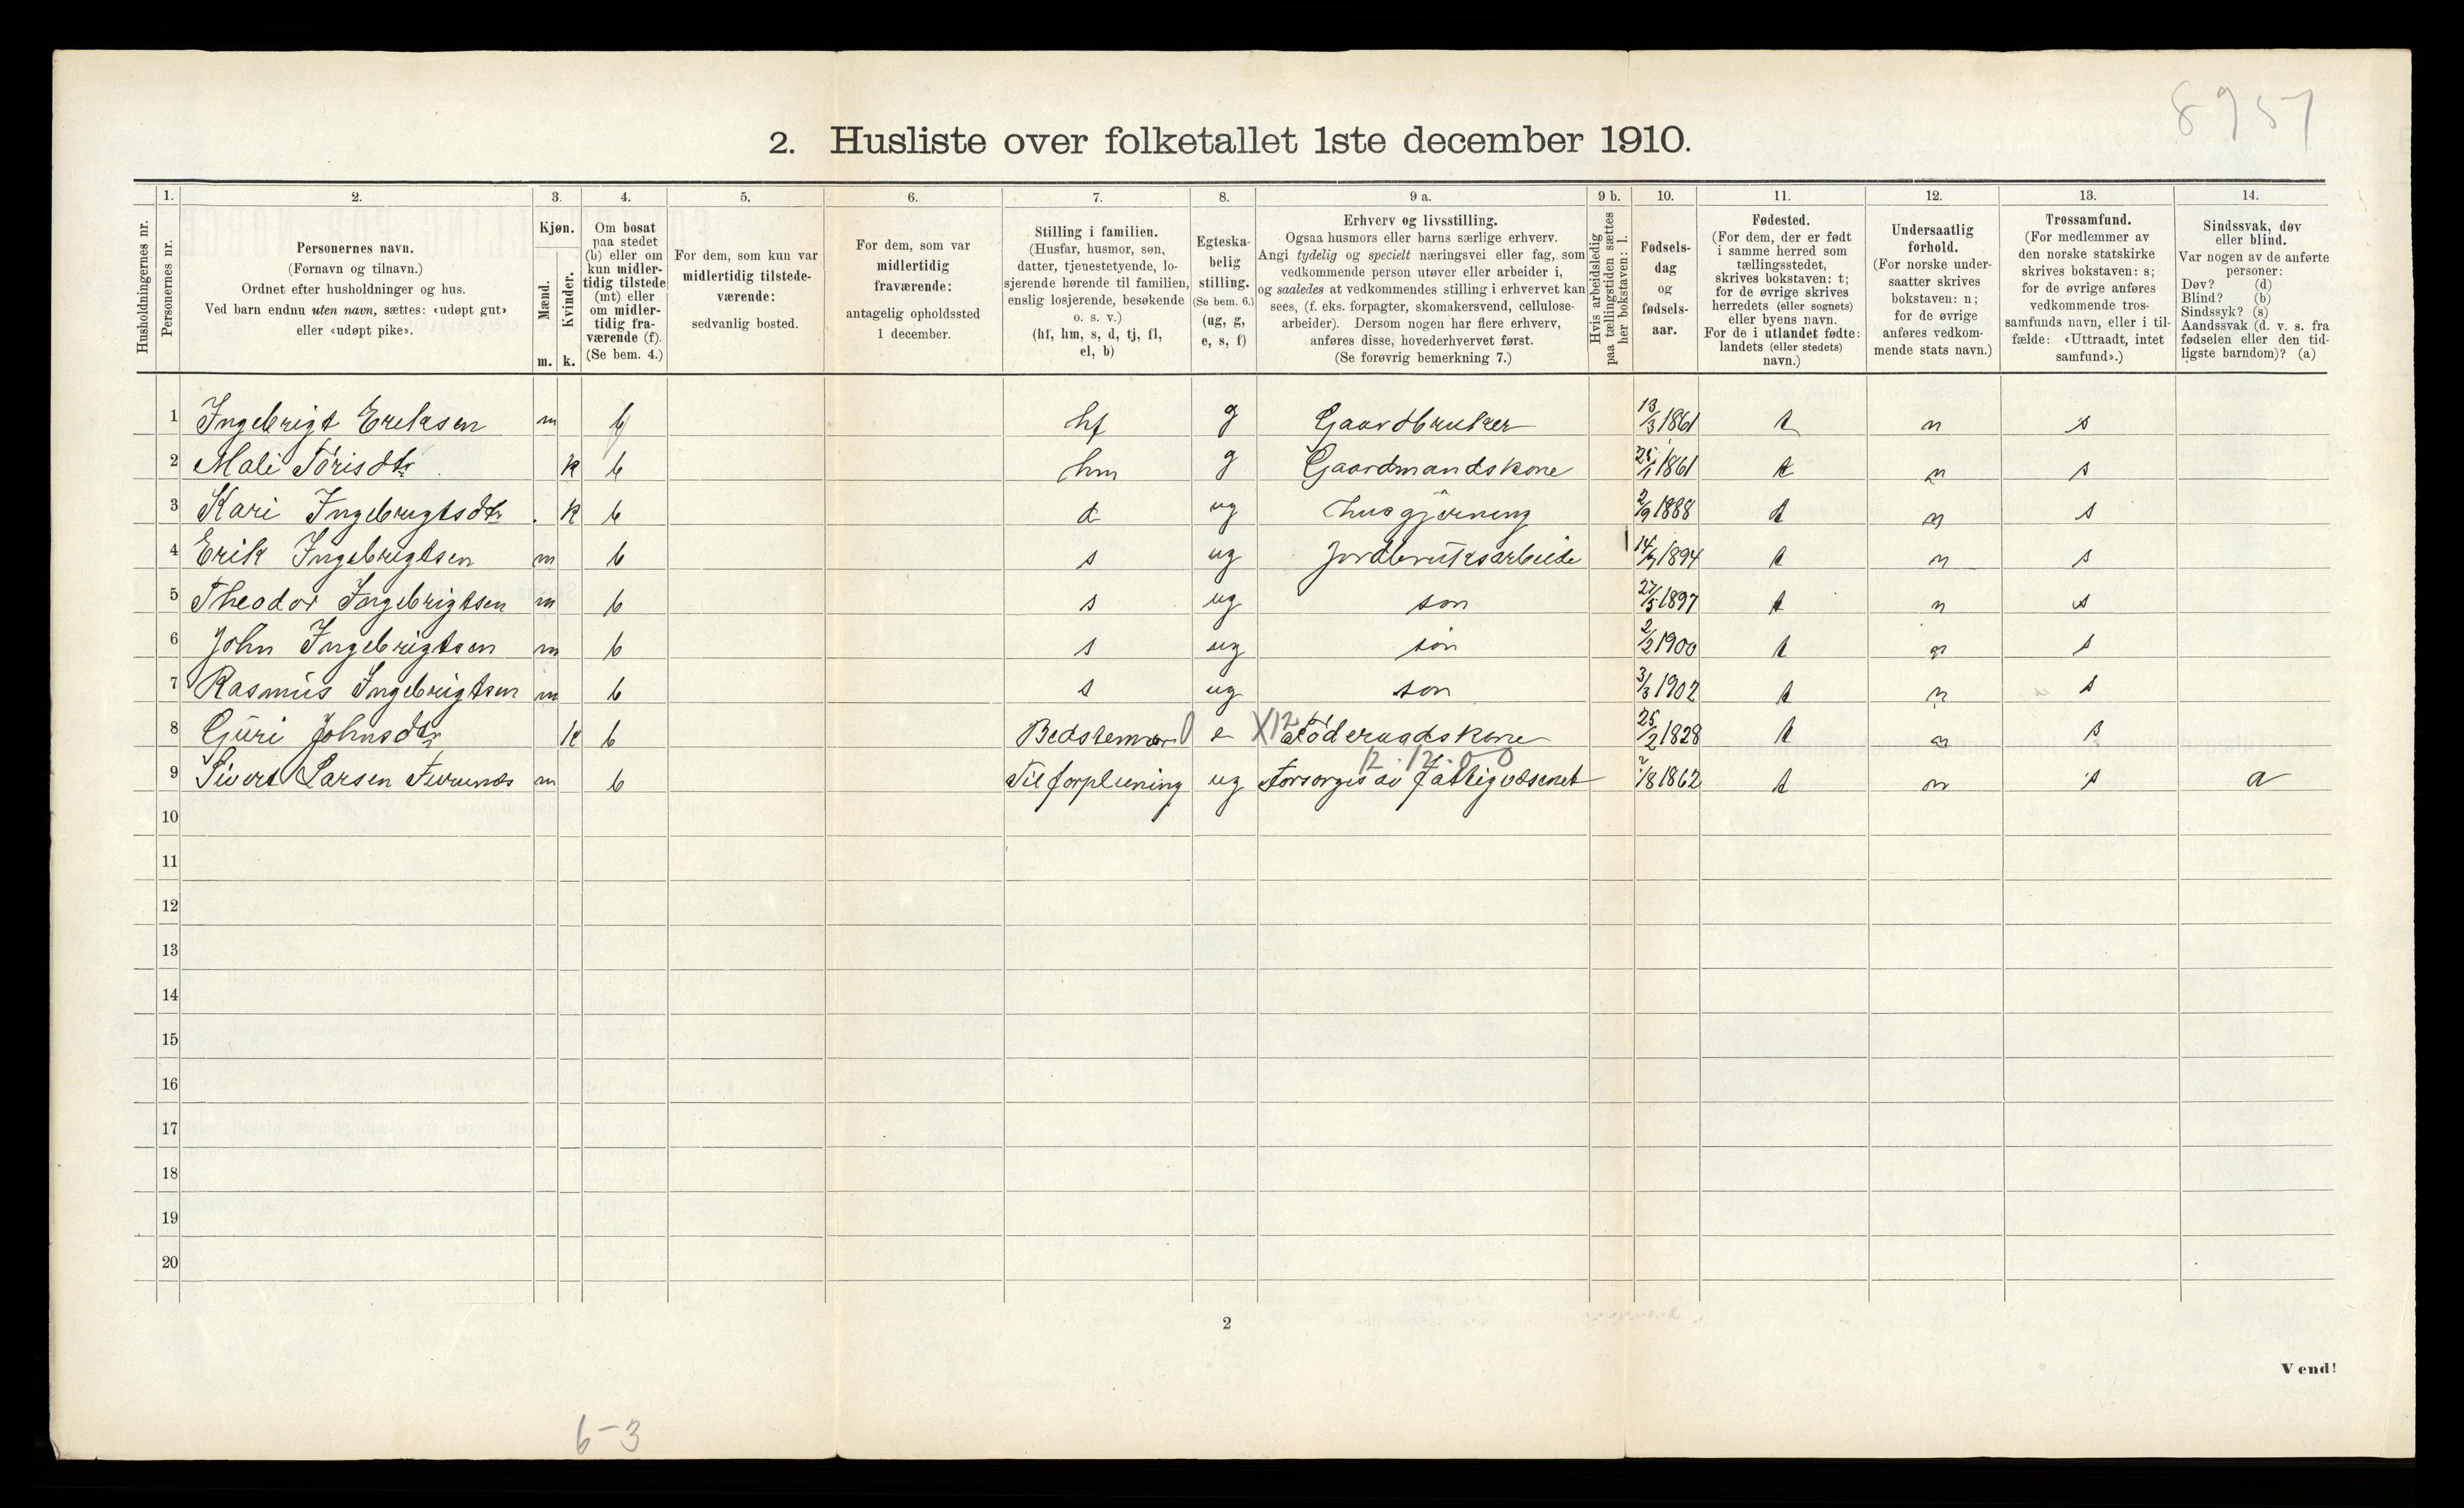 8957
2. Husliste over folketallet 1ste december 1910.
Husholdningernes nr.
1.
Personernes nr.
2.
Personernes navn.
(Fornavn og tilnavn.)
Ordnet efter husholdninger og hus.
Ved barn endnu uten navn, sættes: «udøpt gut»
eller «udøpt pike».
3.
Kjøn.
Mænd.
m.
Kvinder.
k.
4.
Om bosat
paa stedet
(b) eller om
kun midler-
tidig tilstede
(mt) eller
om midler-
tidig fra-
værende (f).
(Se bem. 4.)
5.
For dem, som kun var
midlertidig tilstede-
værende:
sedvanlig bosted.
6.
For dem, som var
midlertidig
fraværende:
antagelig opholdssted
1 december.
7.
Stilling i familien.
(Husfar, husmor, søn,
datter, tjenestetyende, lo-
sjerende hørende til familien,
enslig losjerende, besøkende
o. s. v.)
(hf, hm, s, d, tj, fl,
el, b)
8.
Egteska-
belig
stilling.
(Se bem. 6.)
(ug, g,
e, s, f)
9 a.
Erhverv og livsstilling.
Ogsaa husmors eller barns særlige erhverv.
Angi tydelig og specielt næringsvei eller fag, som
vedkommende person utøver eller arbeider i,
og saaledes at vedkommendes stilling i erhvervet kan
sees, (f. eks. forpagter, skomakersvend, cellulose-
arbeider). Dersom nogen har flere erhverv,
anføres disse, hovederhvervet først.
(Se forøvrig bemerkning 7.)
9 b.
Hvis arbeidsledig
paa tællingstiden sættes
her bokstaven: l.
10.
Fødsels-
dag
og
fødsels-
aar.
11.
Fødested.
(For dem, der er født
i samme herred som
tællingsstedet,
skrives bokstaven: t;
for de øvrige skrives
herredets (eller sognets)
eller byens navn.
For de i utlandet fødte:
landets (eller stedets)
navn.)
12.
Undersaatlig
forhold.
(For norske under-
saatter skrives
bokstaven: n;
for de øvrige
anføres vedkom-
mende stats navn.)
13.
Trossamfund.
(For medlemmer av
den norske statskirke
skrives bokstaven: s;
for de øvrige anføres
vedkommende tros-
samfunds navn, eller i til-
fælde: «Uttraadt, intet
samfund».)
14.
Sindssvak, døv
eller blind.
Var nogen av de anførte
personer:
Døv? (d)
Blind? (b)
Sindssyk? (s)
Aandssvak (d. v. s. fra
fødselen eller den tid-
ligste barndom)? (a)
1 Ingebrigt Eriksen m b hf g Gaardbruker 13/3 1861 t n s
2 Mali Torisdtr k b hm g Gaardmandskone 25/1 1861 t n s
3 Kari Ingebrigtsdtr. k b d ug husgjerning 2/9 1888 t n s
4 Erik Ingebrigtsen m b s ug Jordbruksarbeide 1894 t n s
5 Theodor Ingebrigtsen m b s ug søn 27/5 1897 t n s
6 John Ingebrigtsen m b s ug søn 2/2 1900 t n s
7 Rasmus Ingebrigtsen m b s ug søn 3/3 1902 t n s
8 Guri Johnsdtr k b Bedstemor 0 e X12 Föderaadskone 25/2 1828 t n s
12.12.0-0
9 Sivert Larsen Furunes m b Til forpleining ug Forsørges av Fattigvæsenet /8 1862 t n s a
10
11
12
13
14
15
16
17
18
19
20
2
Vend!
6-3